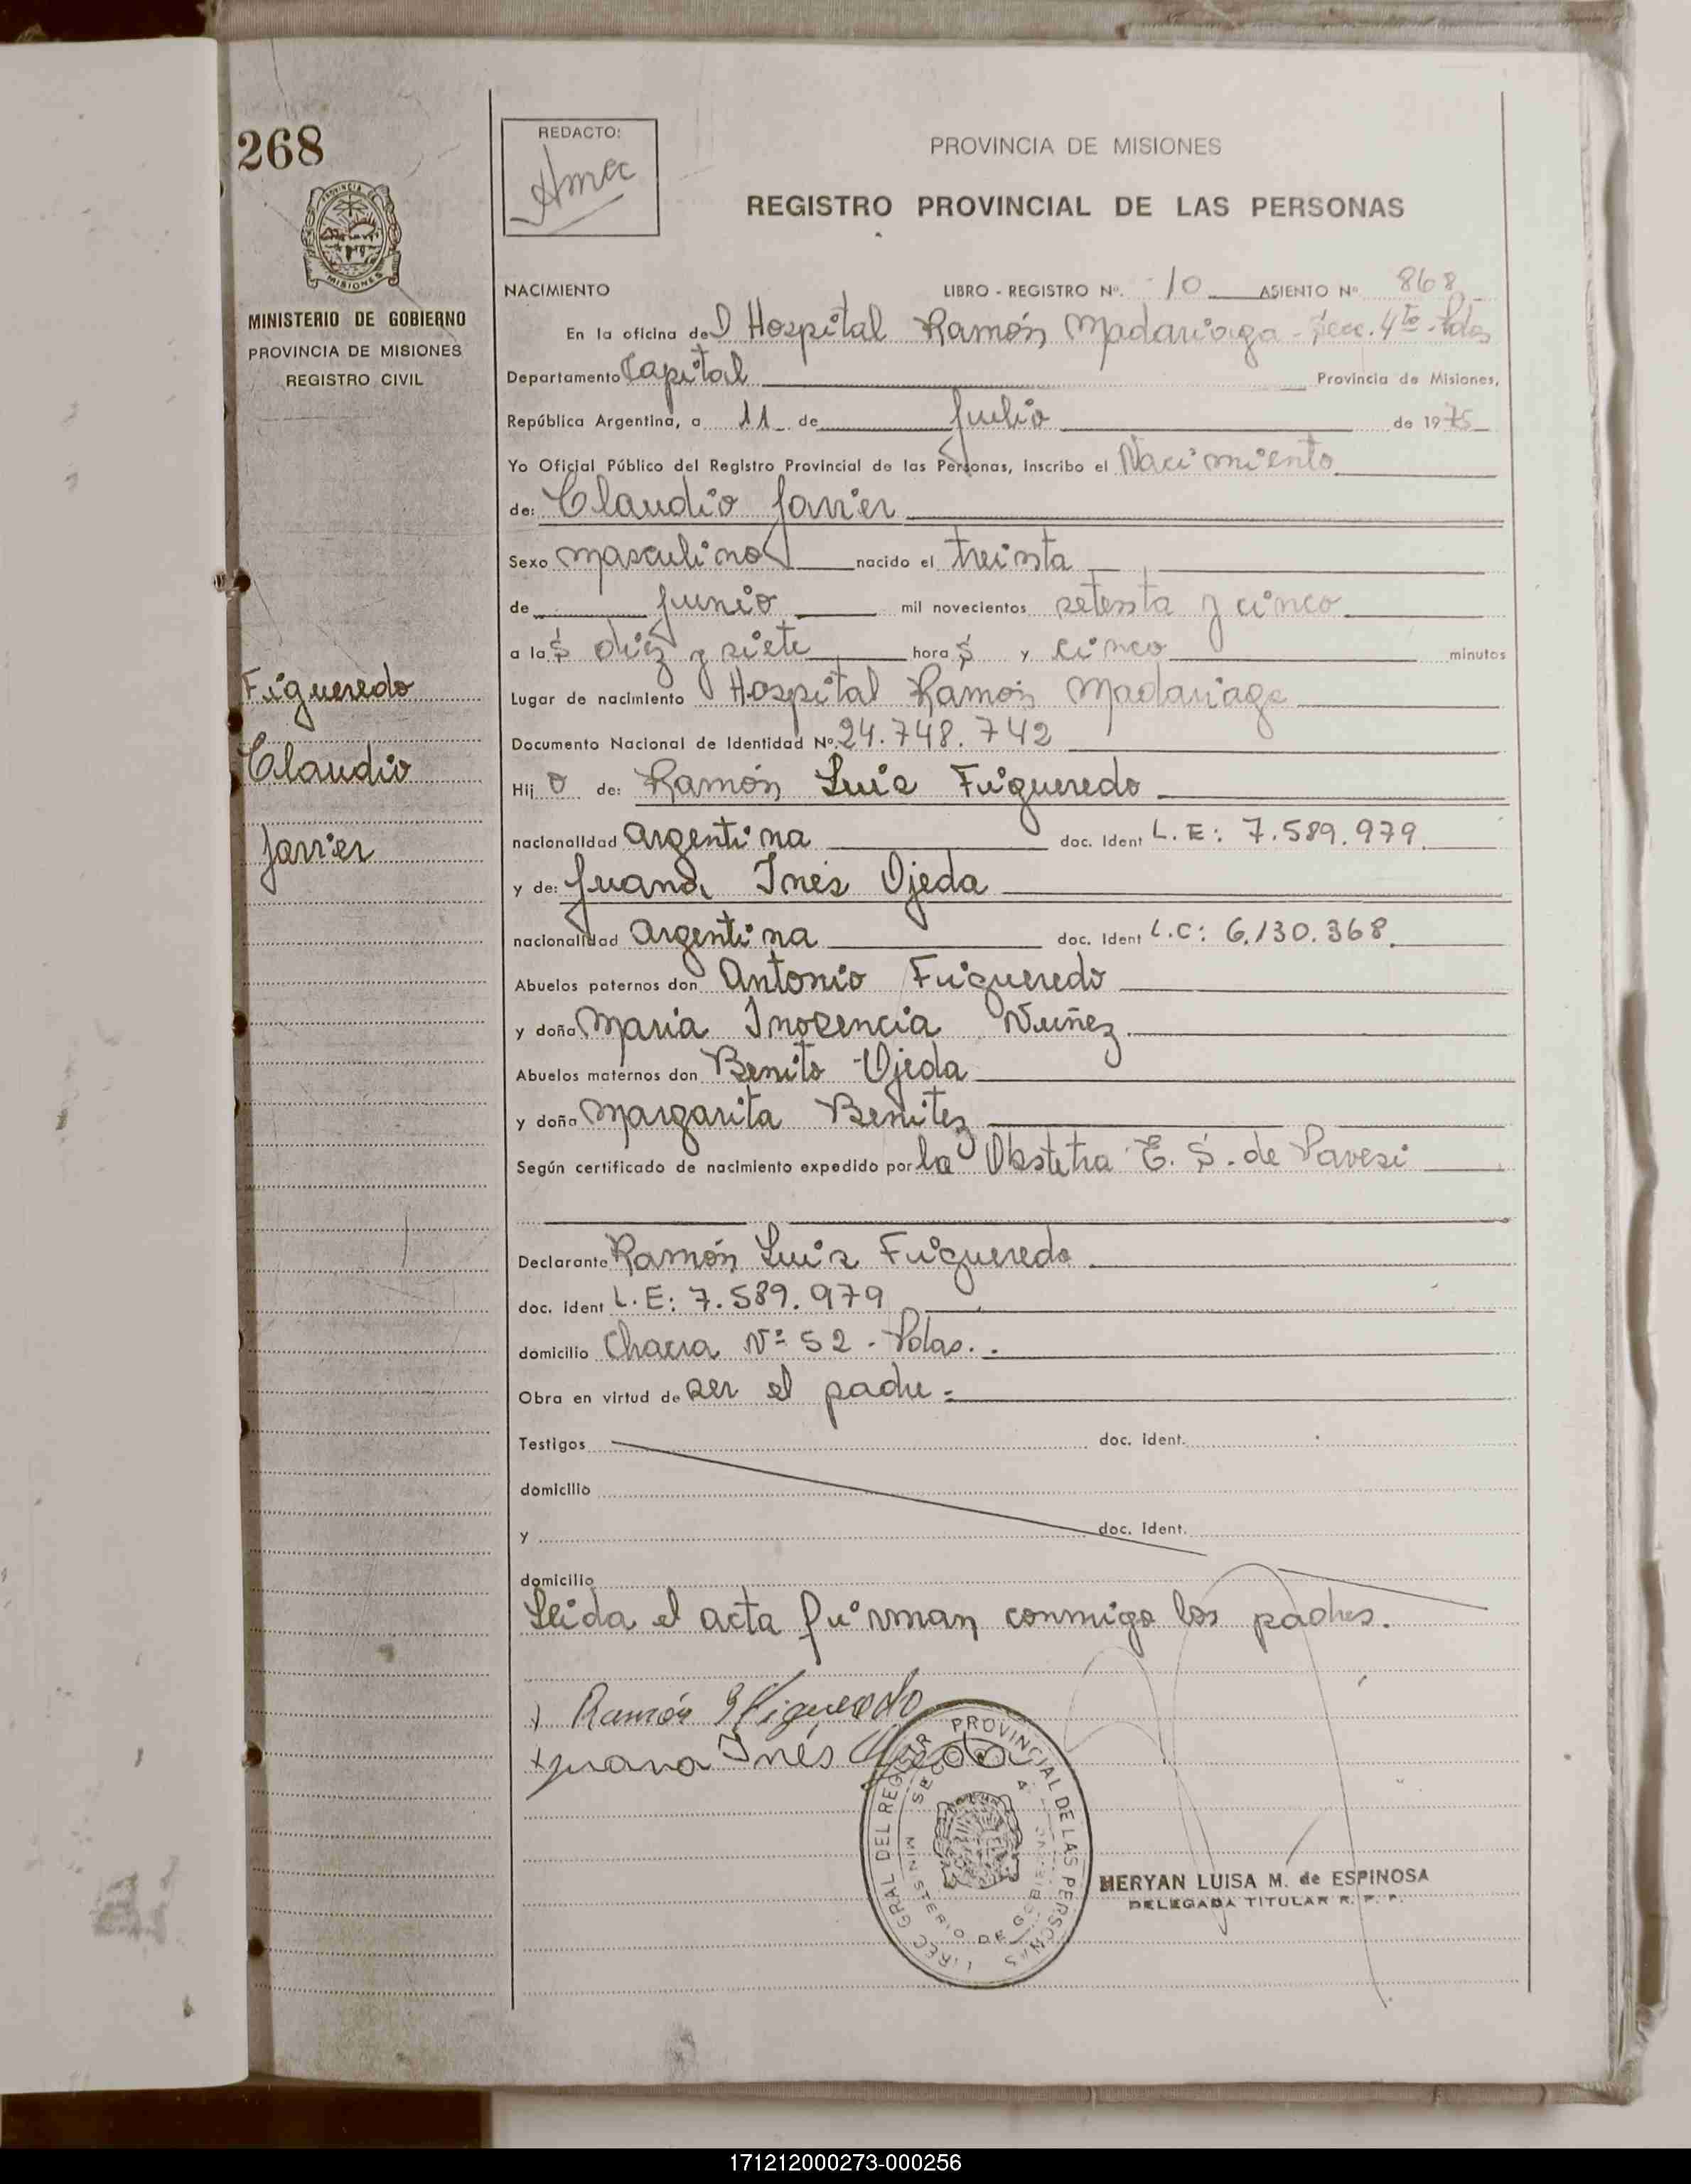 268
REDACTO:
PROVINCIA DE MISIONES
REGISTRO PROVINCIAL DE LAS PERSONAS
MISIONES
MINISTERIO DE GOBIERNO
PROVINCIA DE MISIONES
REGISTRO CIVIL
NACIMIENTO LIBRO - REGISTRO Nº. 10 ASIENTO Nº 868
En la oficina del Hospital Ramón Madariaga - Secc. 4ta - Pdas
Departamento Capital Provincia de Misiones,
República Argentina, a 11 de Julio de 1975
Yo Oficial Público del Registro Provincial de las Personas, Inscribo el Nacimiento
de: Claudio Javier
Sexo masculino nacido el treinta
de junio mil novecientos setenta y cinco
a las diez y siete horas y cinco minutos
Lugar de nacimiento Hospital Ramón Madariaga
Documento Nacional de Identidad Nº 24.748.742
Hijo de: Ramón Luis Figueredo
nacionalidad argentina doc. Ident L.E: 7.589.979
y de: Juana Inés Ojeda
nacionalidad argentina doc. Ident L.C: 6.130.368
Abuelos paternos don Antonio Figueredo
y doña María Inocencia Nuñez
Abuelos maternos don Benito Ojeda
y doña Margarita Benitez
Según certificado de nacimiento expedido por la Obstetra E. S. de Pavesi
Declarante Ramón Luis Figueredo
doc. ident L.E: 7.589.979
domicilio Chacra Nº 52 - Pdas.
Obra en virtud de ser el padre.
Testigos doc. ident.
domicilio
y doc. Ident.
domicilio
Leida el acta firman conmigo los padres.
Figueredo
Claudio
Javier
Ramón Figueredo
Juana Inés Ojeda
PROVINCIAL DE LAS PERSONAS
MINISTERIO DE GOBIERNO
MERYAN LUISA M. de ESPINOSA
DELEGADA TITULAR R. P. P.
171212000273-000256